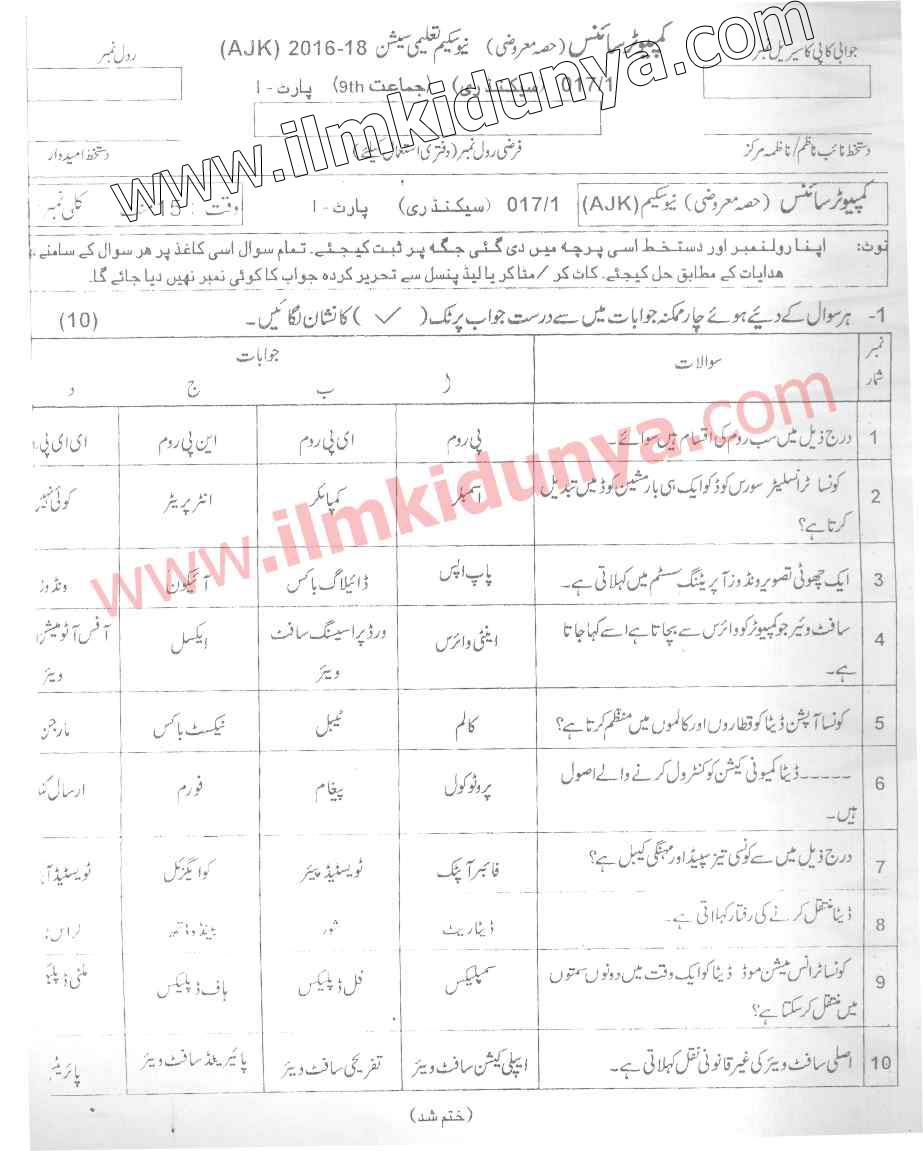 جوابی کاپی کا سیریل نمبر
کمپیوٹر سائنس (حصہ معروضی) نیو سکیم تعلیمی سیشن 2016-18 (AJK)
رول نمبر
017/1 (سیکنڈری) (جماعت 9th) پارٹ - I
دستخط نائب ناظم / ناظمہ مرکز
فرضی رول نمبر (دفتری استعمال کیلئے)
دستخط امیدوار
www.ilmkidunya.com
کمپیوٹر سائنس (حصہ معروضی) نیو سکیم (AJK) 017/1 (سیکنڈری) پارٹ - I وقت : 15 کلی نمبر
نوٹ: اپنا رولنمبر اور دستخط اسی پرچہ میں دی گئی جگہ پر ثبت کیجئے۔ تمام سوال اسی کاغذ پر ھر سوال کے سامنے
ھدایات کے مطابق حل کیجئے۔ کاٹ کر / مٹا کر یا لیڈ پنسل سے تحریر کردہ جواب کا کوئی نمبر نھیں دیا جائے گا۔
1- ہر سوال کے دیئے ہوئے چار ممکنہ جوابات میں سے درست جواب پر ٹک (✓) کا نشان لگائیں۔ (10)
نمبر شمار سوالات جوابات
ا ب ج د
1 درج ذیل میں سب روم کی اقسام ہیں سوائے۔ پی روم ای پی روم این پی روم ای ای پی
2 کونسا ٹرانسلیٹر سورس کوڈ کو ایک ہی بار مشین کوڈ میں تبدیل اسمبلر کمپائلر انٹر پریٹر کوئی نہیں
کرتا ہے؟
3 ایک چھوٹی تصویر ونڈوز آپریٹنگ سسٹم میں کہلاتی ہے۔ پاپ اپس ڈائیلاگ باکس آئیکون ونڈوز
4 سافٹ وئیر جو کمپیوٹر کو وائرس سے بچاتا ہے اسے کہا جاتا اینٹی وائرس ورڈ پراسیسنگ سافٹ ایکسل آفس آٹومیشن
ہے۔ ویئر ویئر
5 کونسا آپشن ڈیٹا کو قطاروں اور کالموں میں منظم کرتا ہے؟ کالم ٹیبل ٹیکسٹ باکس مارجن
6 ----- ڈیٹا کمیونی کیشن کو کنٹرول کرنے والے اصول پروٹوکول پیغام فورم ارسال
ہیں۔
7 درج ذیل میں سے کونسی تیز سپیڈ اور مہنگی کیبل ہے؟ فائبر آپٹک ٹویسٹیڈ پیئر کوایگزیل ٹویسٹیڈ
8 ڈیٹا منتقل کرنے کی رفتار کہلاتی ہے۔ ڈیٹا ریٹ شور بینڈ وڈتھ
9 کونسا ٹرانس میشن موڈ ڈیٹا کو ایک وقت میں دونوں سمتوں سمپلیکس فل ڈپلیکس ہاف ڈپلیکس ملٹی
میں منتقل کر سکتا ہے؟
10 اصلی سافٹ ویئر کی غیر قانونی نقل کہلاتی ہے۔ ایپلی کیشن سافٹ ویئر تفریحی سافٹ ویئر پائیریٹڈ سافٹ ویئر
www.ilmkidunya.com
(ختم شد)